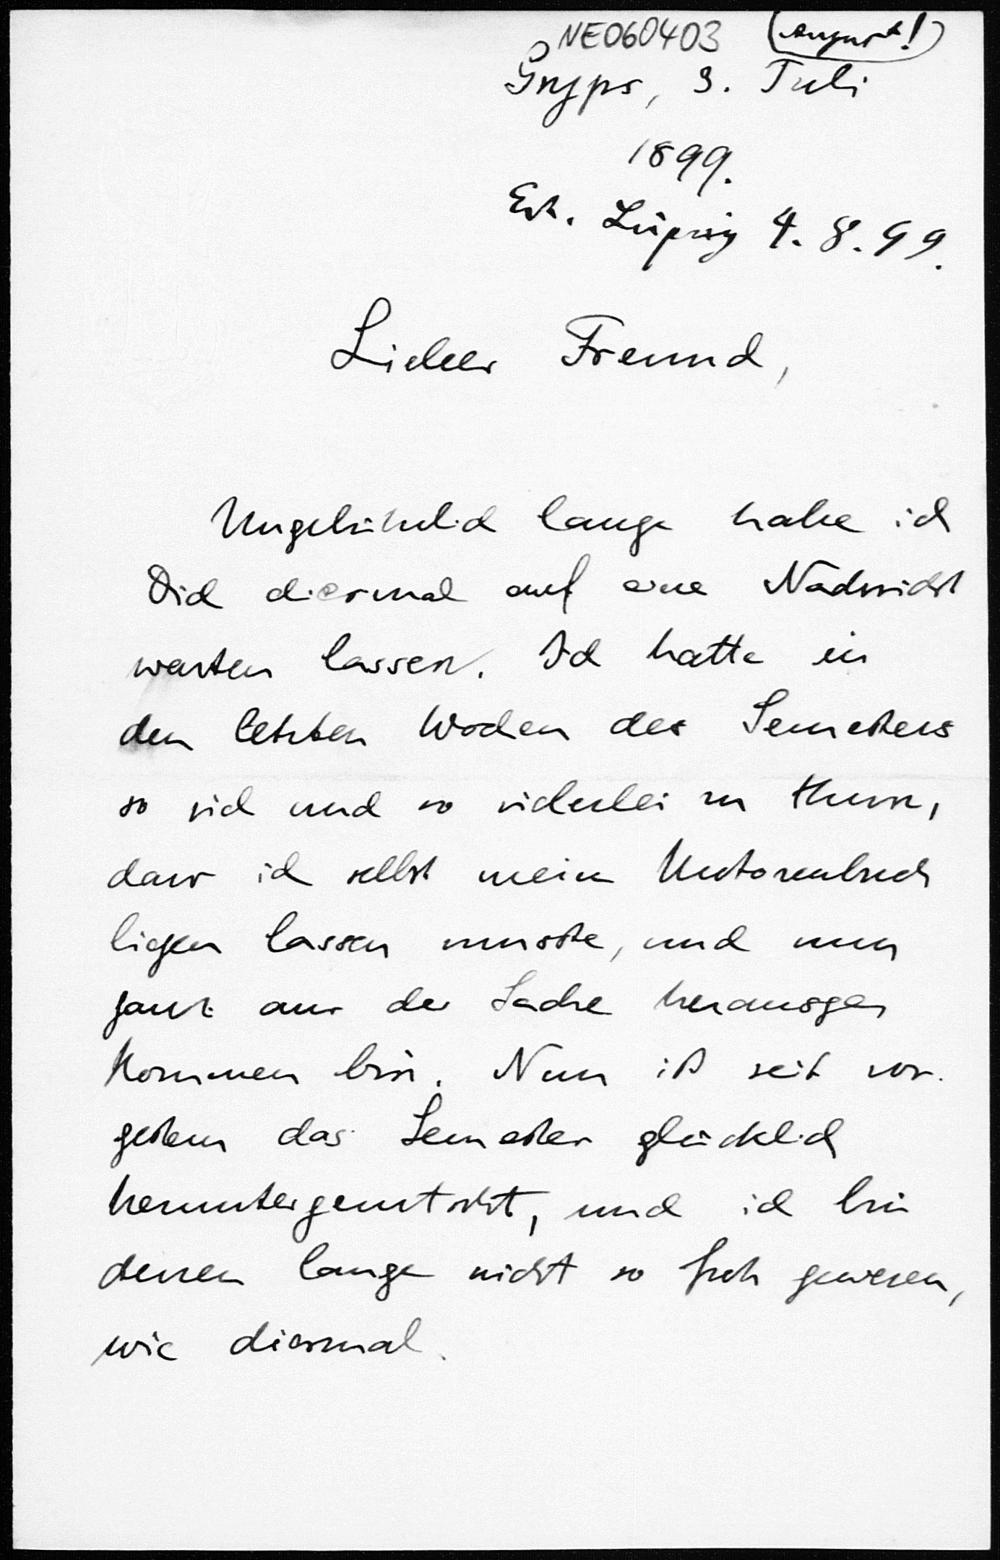 NE060403 (August!)
Gryps, 3. Juli
1899.
Erh. Leipzig 4. 8. 99.
Lieber Freund,
Ungebührlich lange habe ich
Dich diesmal auf eine Nachricht
warten lassen. Ich hatte in
den letzten Wochen des Semesters
so viel und so vielerlei zu thun,
dass ich selbst mein Motorenbuch
liegen lassen musste, und nun
ganz aus der Sache herausge
kommen bin. Nun ist seit vor
gestern das Semester glücklich
heruntergerutscht, und ich bin
dessen lange nicht so froh gewesen,
wie diesmal.